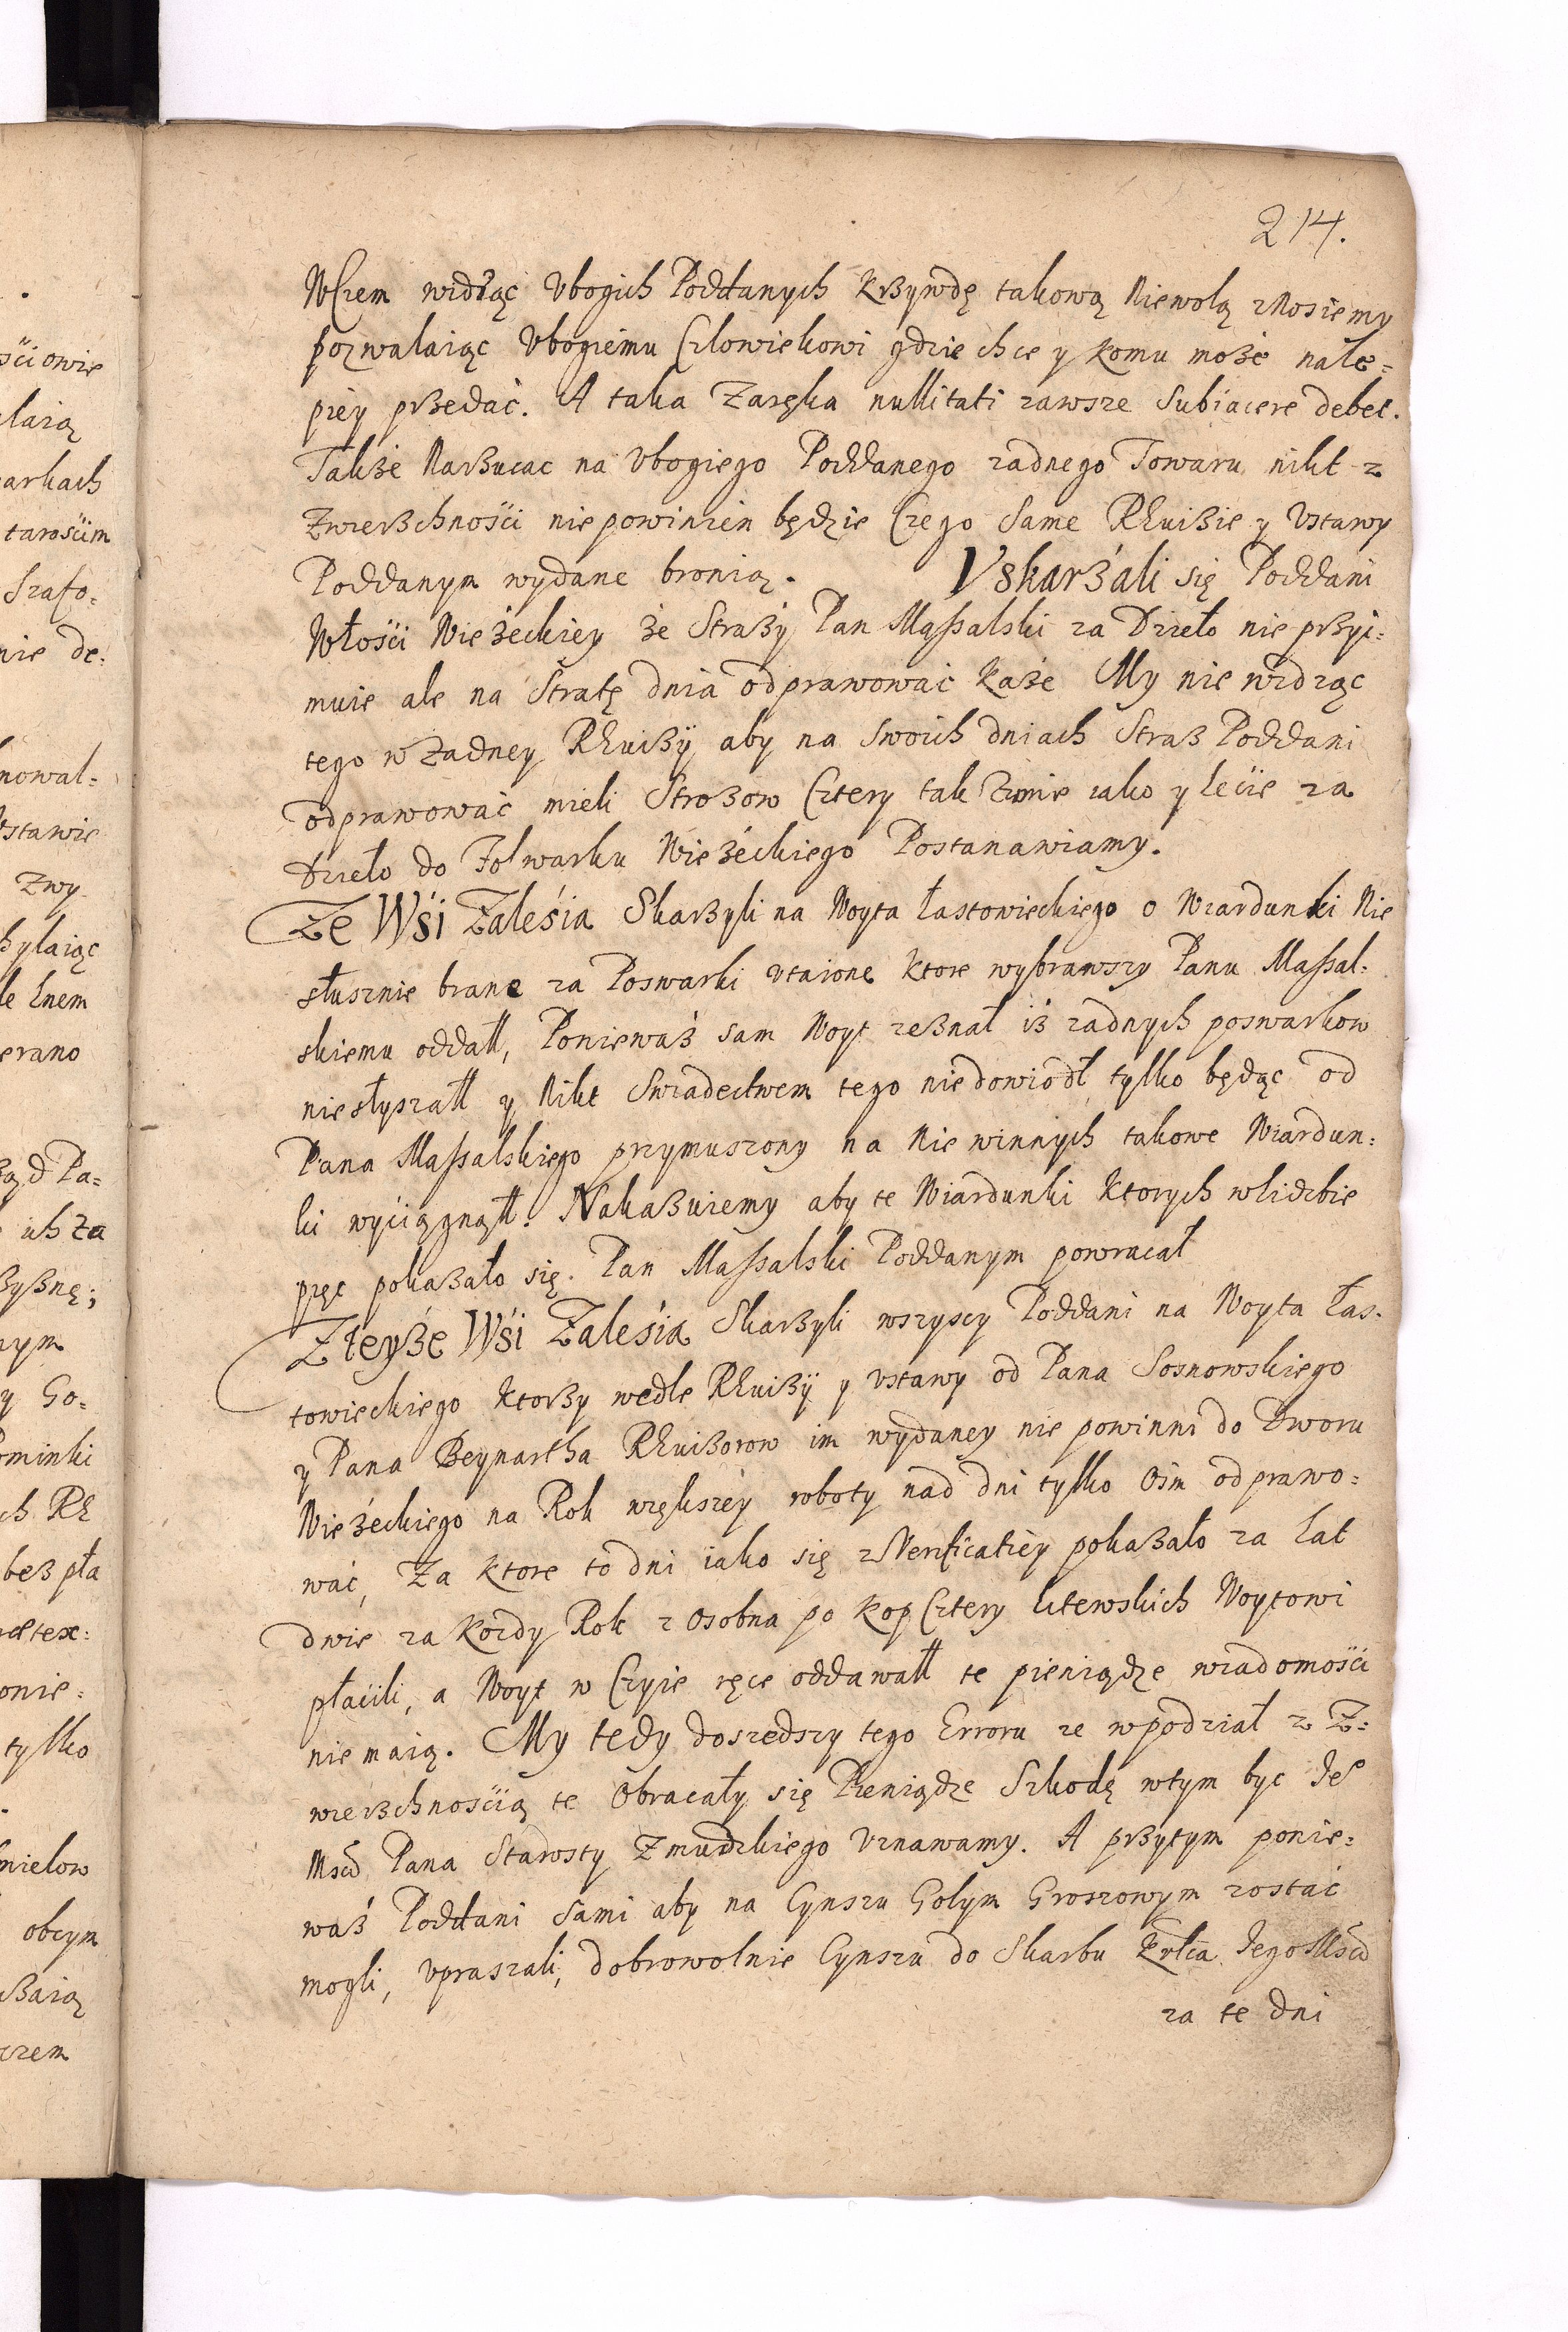 214.
WCzem widząc Vbogich Poddanych Krzywdę takową Niewolą znosiemy
pozwalaiąc Vbogiemu Człowiekowi gdzie chce y komu może nale=
piey przedać. A taka Zaręka nullitati zawsze Subiacere debet.
Także Narzucac na Vbogiego Poddanego zadnego Towaru nikt z
Zwierzchności nie powinien będzie Czego Same REwizie y Vstawy
Poddanym wydane bronią. Vskarżali się Poddani
Włości Wieżeckiey że Straży Pan Massalski za Dzieło nie przyi=
muie ale na Stratę dnia odprawować każe My nie widząc
tego w Zadney REwizÿ aby na Swoich dniach Straż Poddani
odprawować mieli Strożow Cztery tak Zimie iako y Lecie za
Dzieło do Folwarku Wieżeckiego Postanawiamy.
Ze Wsi Zalesia Skarżyli na Woyta Łastowieckiego o Wiardunki Nie
słusznie brane za Poswarki vtaione Ktore wybrawszy Panu Massal=
skiemu oddałł, Ponieważ sam Woyt zeznał iż zadnych poswarkow
niesłyszałł y Nikt Swiadectwem tego niedowiodł tylko będąc od
Pana Massalskiego przymuszony na Niewinnych takowe Wiardun=
ki wyciągnąłł. Nakazuiemy aby te Wiardunki Ktorych wliczbie
pięc pokazało się. Pan Massalski Poddanym powracał
Zteyże Wsi Zalesia Skarżyli wszyscy Poddani na Woyta Łas=
towieckiego Ktorzy wedle REwizÿ y vstawy od Pana Sosnowskiego
y Pana Beynartha REwizorow im wydaney nie powinni do Dworu
Wieżeckiego na Rok większey roboty nad dni tylko Osm odprawo=
wać, Za Ktore to dni iako się zVerificatiey pokazało za Lat
dwie za Kożdy Rok z Osobna po Kop Cztery Litewskich Woytowi
płacili, a Woyt w Czyie ręce oddawałł te pieniądze wiadomości
nie maią. My tedy doszedszy tego Erroru ze wpodział z Z=
wierzchnością te Obracały się Pieniądze Szkodę wtym byc Je°
Mści Pana Starosty Zmudzkiego Vznawamy. A przytym ponie=
waż Poddani Sami aby na Cynszu Golym Groszowym zostać
mogli, vpraszali, dobrowolnie Cynszu do Skarbu Krlia Jego Mści
za te dni